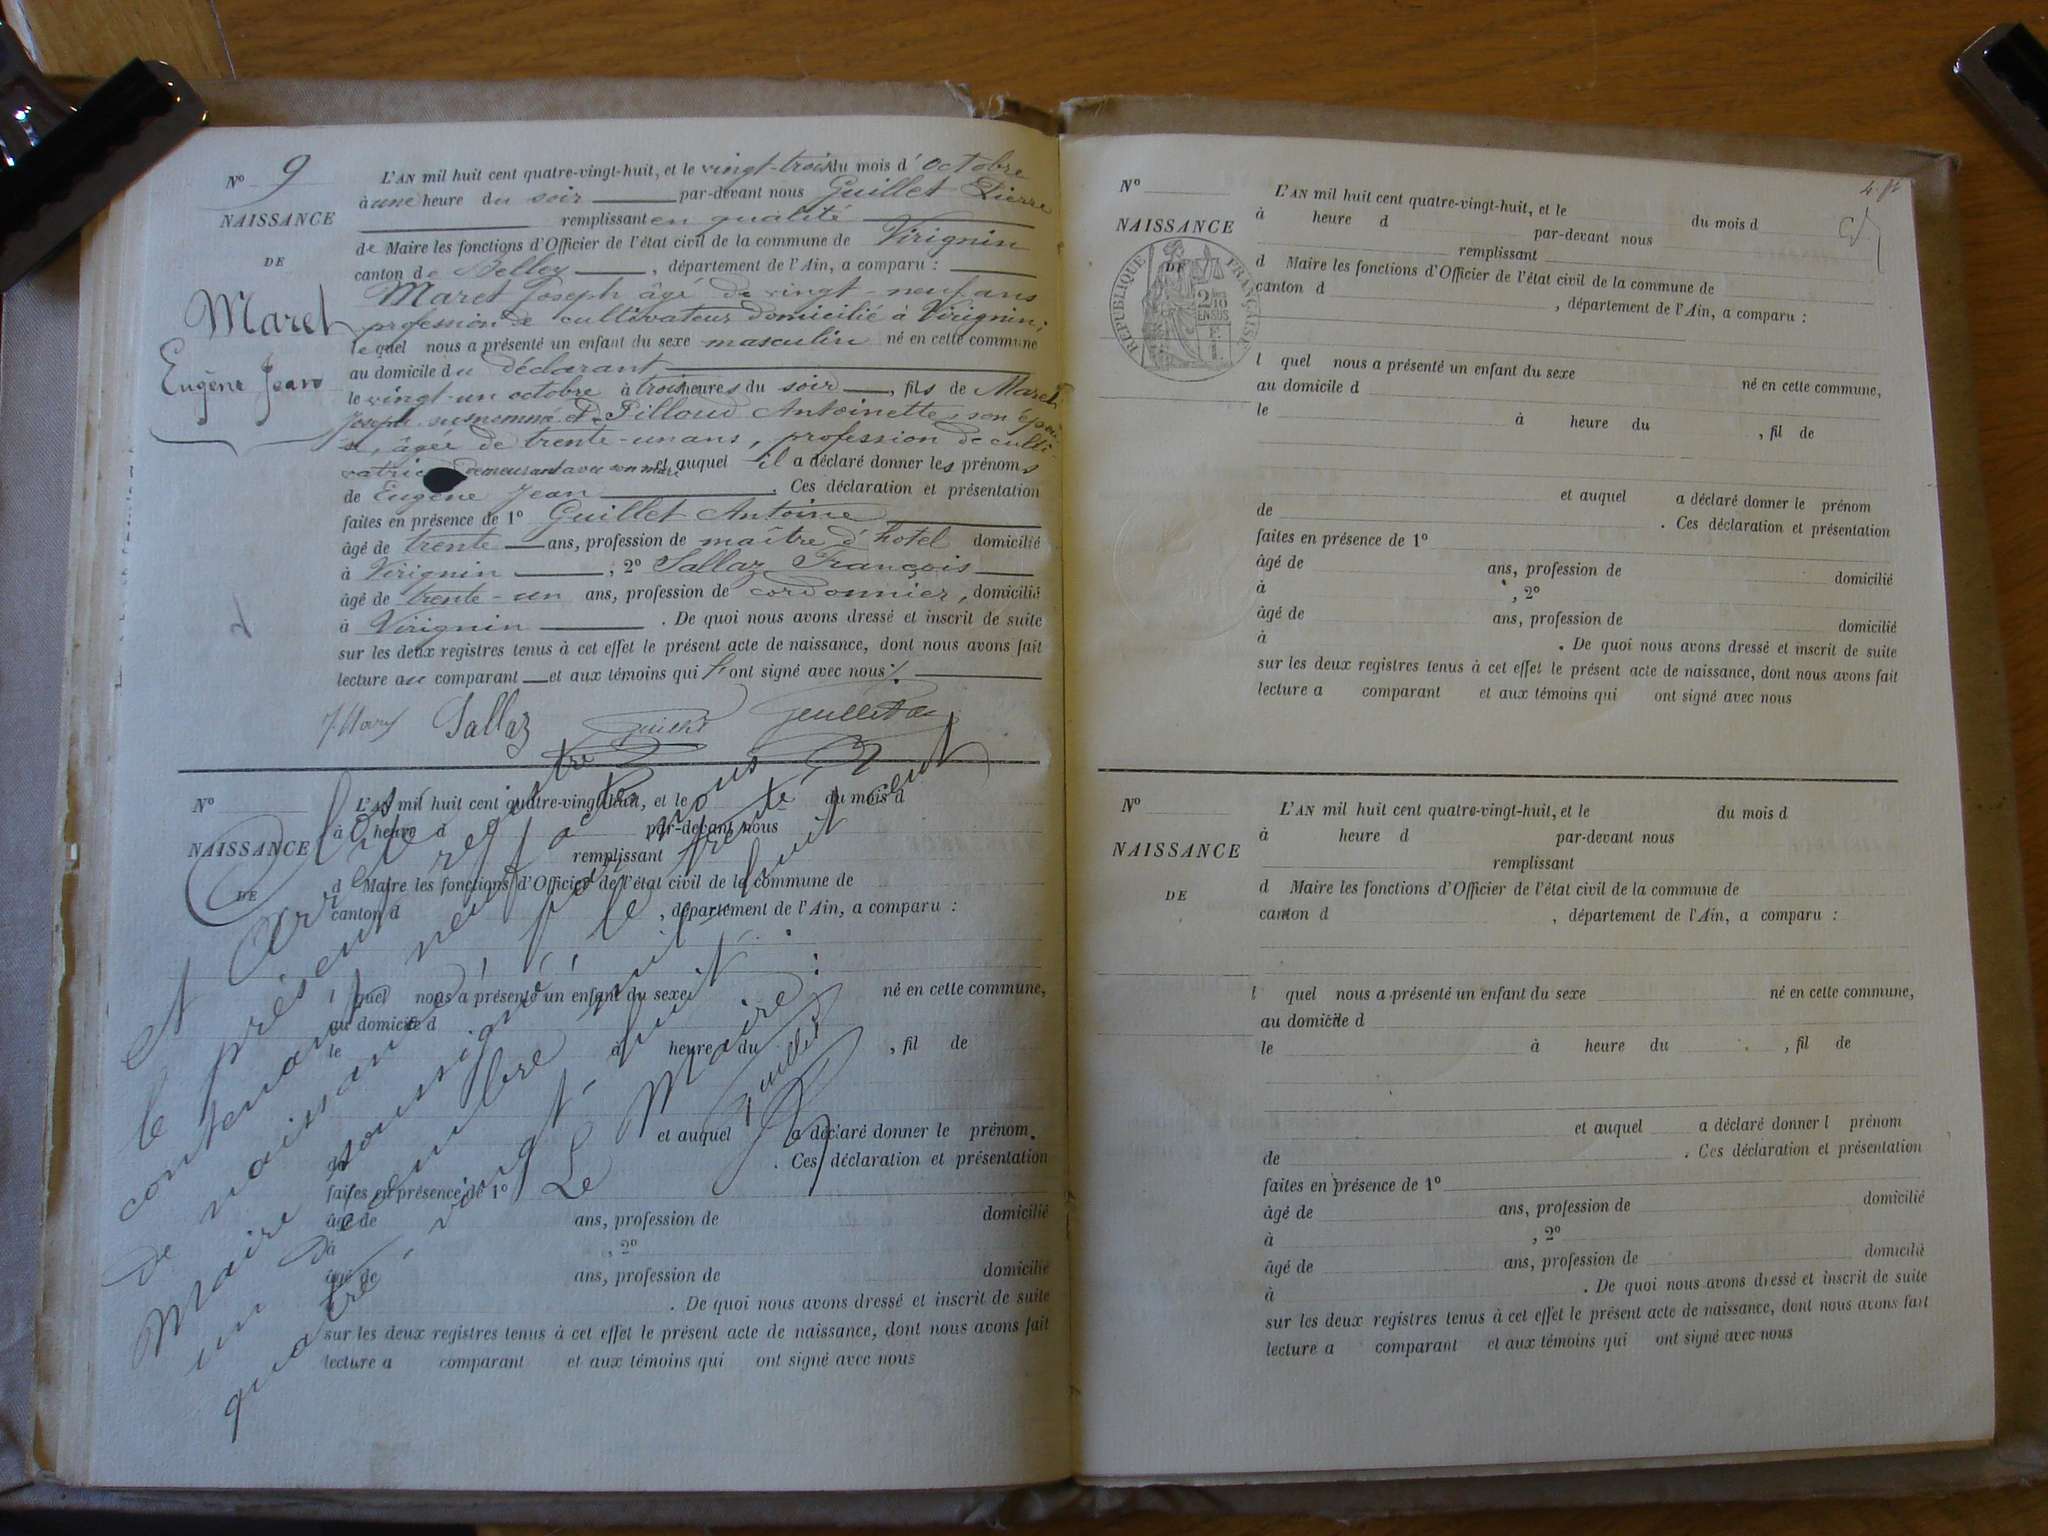 N° 9
NAISSANCE
DE
Maret
Eugène Jean
L'AN mil huit cent quatre-vingt-huit, et le vingt-trois du mois d'octobre
à une heure du soir par-devant nous Guillet Pierre
remplissant en qualité
de Maire les fonctions d'Officier de l'état civil de la commune de Virignin
canton de Belley, département de l'Ain, a comparu :
Maret Joseph âgé de vingt-neuf ans
profession de cultivateur domicilié à Virignin;
lequel nous a présenté un enfant du sexe masculin né en cette commune
au domicile du déclarant
le vingt-un octobre à trois heures du soir, fils de Maret
Joseph susnommé et de Pilloud Antoinette, son épou-
se, âgée de trente-un ans, profession de culti-
vatrice demeurant avec son mari et auquel il a déclaré donner les prénoms
de Eugène Jean. Ces déclaration et présentation
faites en présence de 1° Guillet Antoine
âgé de trente ans, profession de maître d'hotel domicilié
à Virignin, 2° Sallaz François
âgé de trente-un ans, profession de cordonnier, domicilié
à Virignin. De quoi nous avons dressé et inscrit de suite
sur les deux registres tenus à cet effet le présent acte de naissance, dont nous avons fait
lecture au comparant et aux témoins qui l'ont signé avec nous ./.
Sallaz
N°
NAISSANCE
DE
L'AN mil huit cent quatre-vingt-huit, et le du mois d
à heure d par-devant nous
remplissant
d Maire les fonctions d'Officier de l'état civil de la commune de
canton d , département de l'Ain, a comparu :
l quel nous a présenté un enfant du sexe né en cette commune,
au domicile d
le à heure du , fil de
et auquel a déclaré donner le prénom.
de . Ces déclaration et présentation
faites en présence de 1°
âgé de ans, profession de domicilié
à , 2°
âgé de ans, profession de domicilié
à . De quoi nous avons dressé et inscrit de suite
sur les deux registres tenus à cet effet le présent acte de naissance, dont nous avons fait
lecture a comparant et aux témoins qui ont signé avec nous
Clos
et Arrêté
le présent registre
contenant neuf actes
de naissance, par nous
Maire soussigné, le trente-
un Décembre mil huit cent
quatre-vingt-huit.
Le Maire :
Guillet
N°
NAISSANCE
DE
RÉPUBLIQUE FRANÇAISE
2/10
EN SUS
L'AN mil huit cent quatre-vingt-huit, et le du mois d
à heure d par-devant nous
remplissant
d Maire les fonctions d'Officier de l'état civil de la commune de
canton d , département de l'Ain, a comparu :
l quel nous a présenté un enfant du sexe
au domicile d né en cette commune,
le à heure du , fil de
et auquel a déclaré donner le prénom
de . Ces déclaration et présentation
faites en présence de 1°
âgé de ans, profession de domicilié
à , 2°
âgé de ans, profession de domicilié
à . De quoi nous avons dressé et inscrit de suite
sur les deux registres tenus à cet effet le présent acte de naissance, dont nous avons fait
lecture a comparant et aux témoins qui ont signé avec nous
N°
NAISSANCE
DE
L'AN mil huit cent quatre-vingt-huit, et le du mois d
à heure d par-devant nous
remplissant
d Maire les fonctions d'Officier de l'état civil de la commune de
canton d , département de l'Ain, a comparu :
l quel nous a présenté un enfant du sexe né en cette commune,
au domicile d
le à heure du , fil de
et auquel a déclaré donner l prénom
de . Ces déclaration et présentation
faites en présence de 1°
âgé de ans, profession de domicilié
à , 2°
âgé de ans, profession de domicilié
à . De quoi nous avons dressé et inscrit de suite
sur les deux registres tenus à cet effet le présent acte de naissance, dont nous avons fait
lecture a comparant et aux témoins qui ont signé avec nous